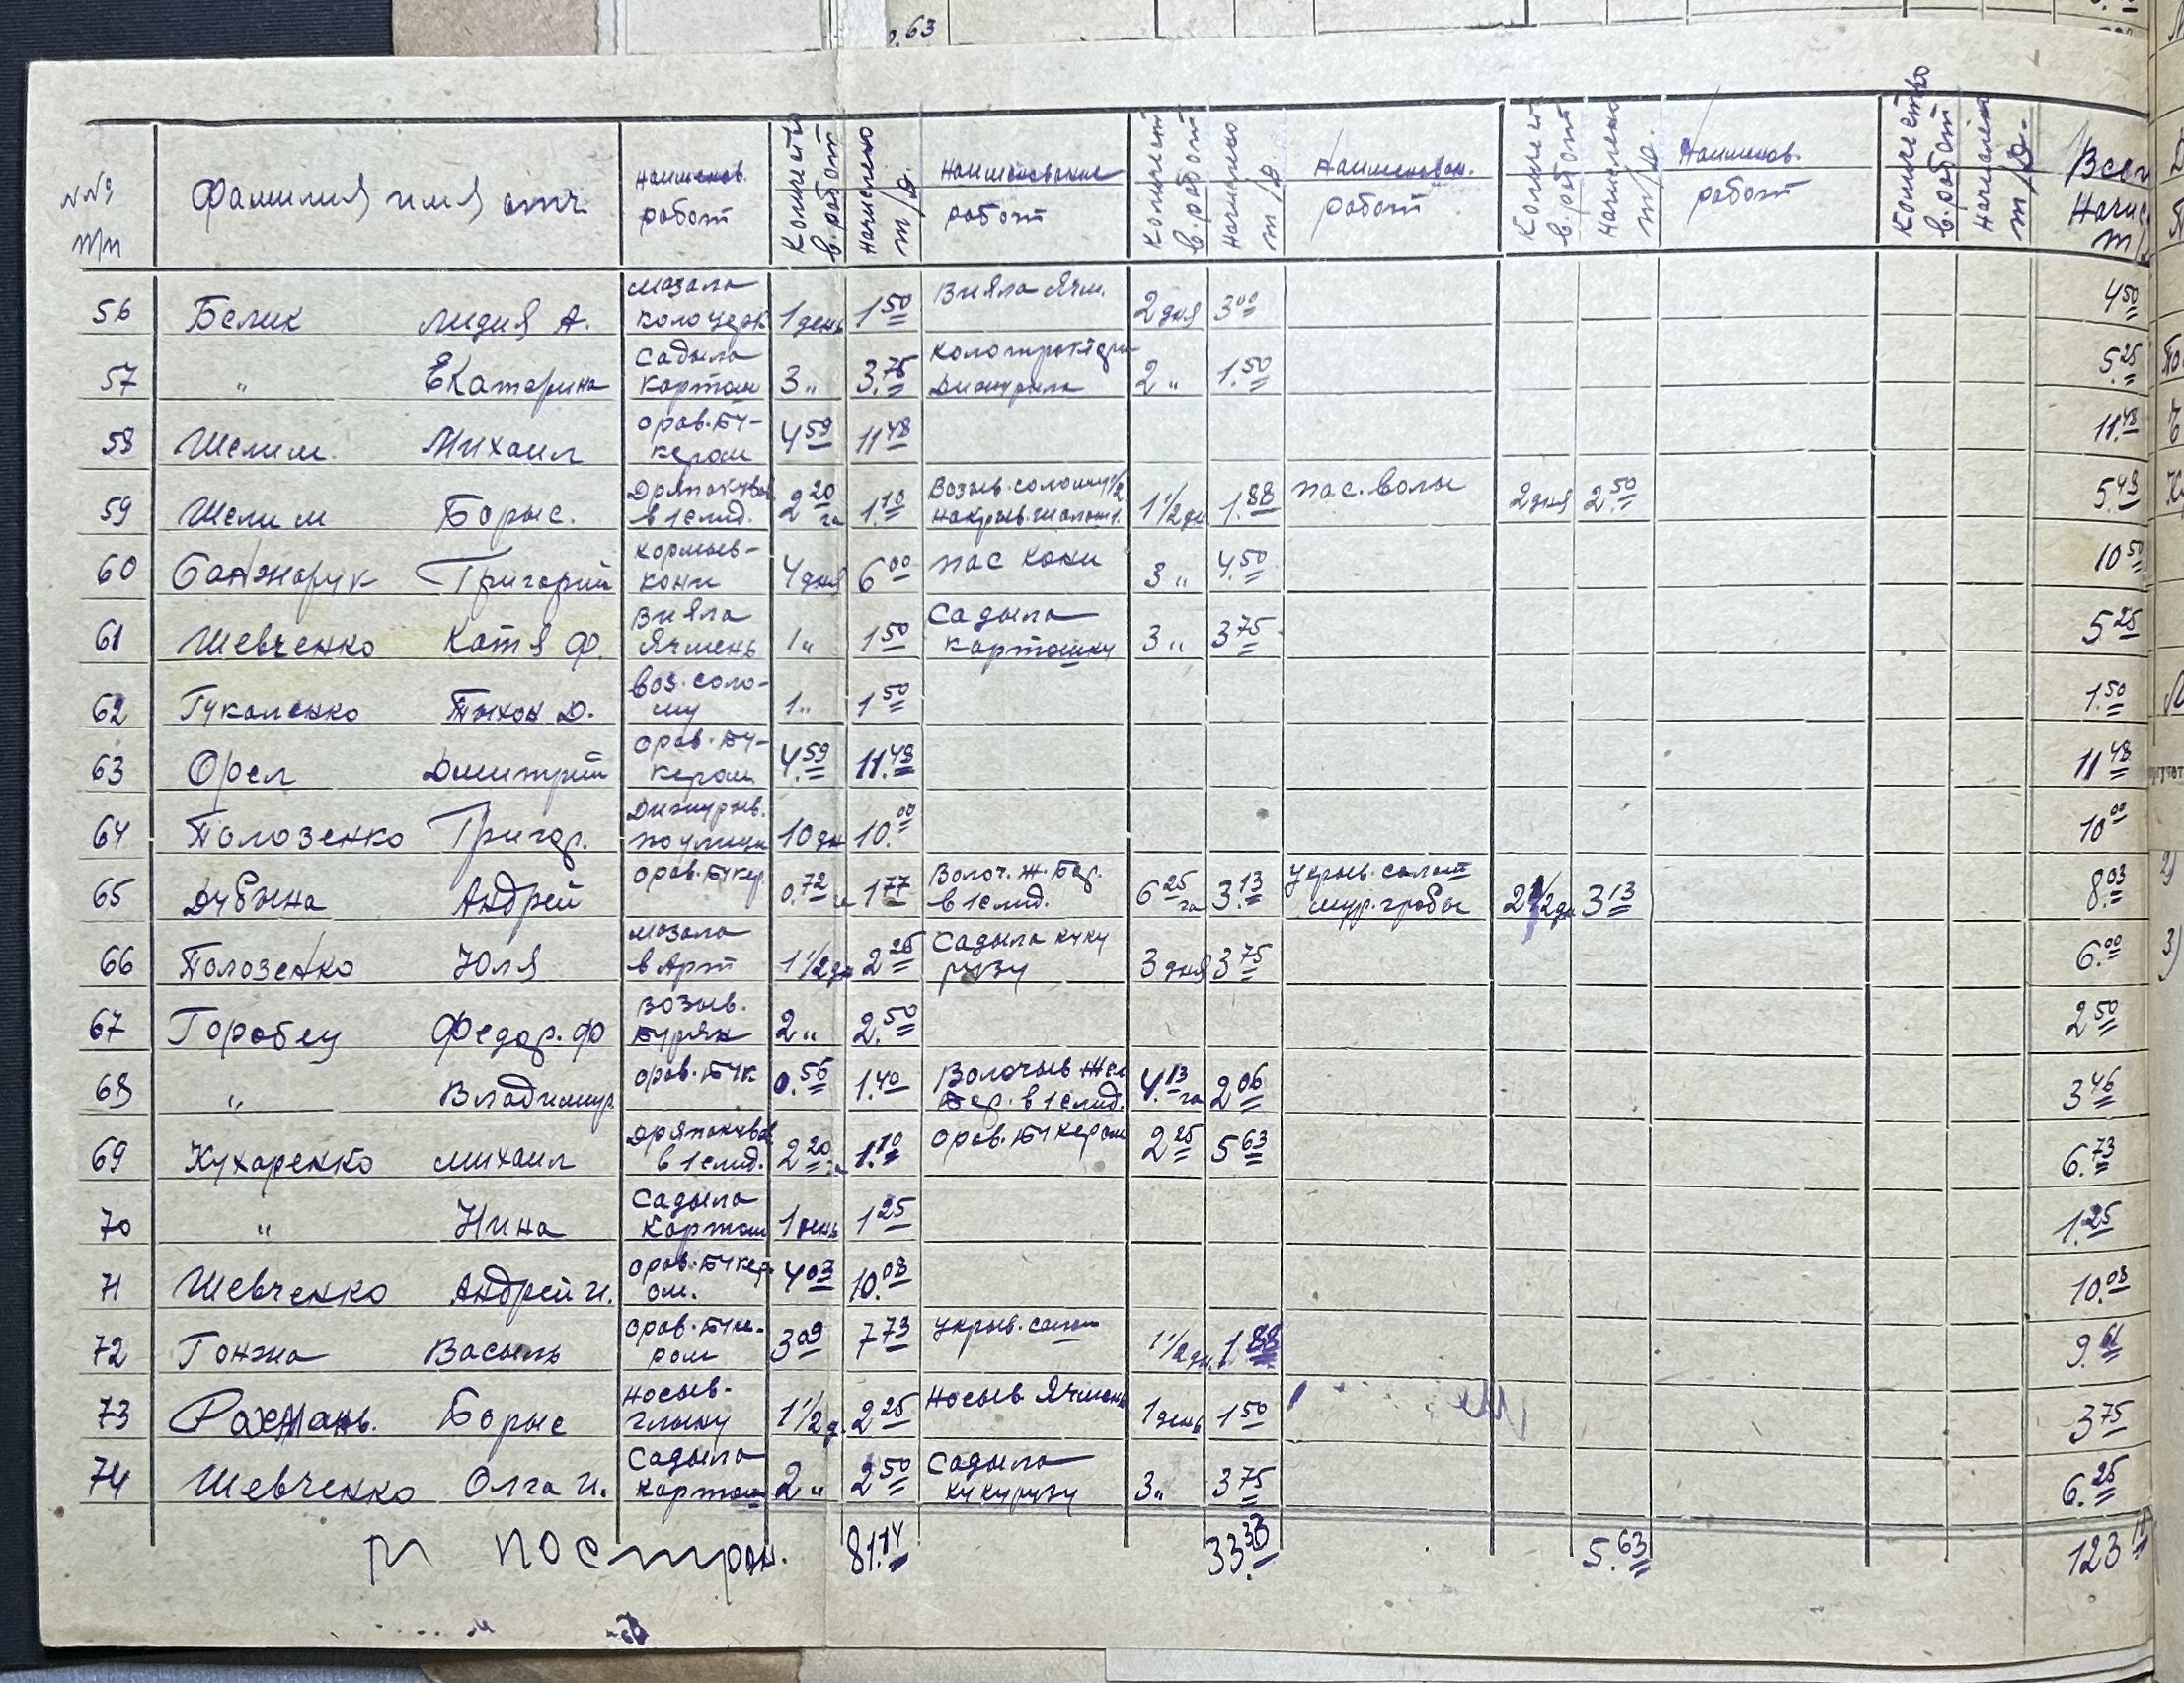 №№ п/п Фамилия имя отч. Наименов. работ Количеств. в. работ Начислено т/д. Наименование работ Количест в. работ Начислено т/д. Наименован. работ Количест в. работ Начислено т/д. Наименов. работ Количество в. работ Начислен т/д. Всег Начис. т/
56 Белик Лидия А. мазала 1 день 1.50 Вияла Ячм. 2 дня 3.00 4.50
57 " Екатерина Садыла картош 3 " 3.75 2 " 1.50 5.25
58 Шелим. Михаил орав. бу- кером 4.59 11.48 11.48
59 Шелим Борыс. Дряпакував в 1 слид. 2.20 га 1.10 Возыв. солому 1/2 1 1/2 дн. 1.88 пас. волы 2 дня 2.50 5.48
60 Санжарук Григорий кормыв- кони 4 дня 6.00 пас кони 3 " 4.50 10.50
61 Шевченко Катя Ф. Вияла Ячмень 1 " 1.50 Садыла картошку 3 " 3.75 5.25
62 Гукаленко Тыхон Д. воз. соло- му 1 " 1.50 1.50
63 Орел Дмитрий орав. бу- кером 4.59 11.48 11.48
64 Полозенко Григор. Дижурыв. по улици 10 дн 10.00 10.00
65 Дубына Андрей орав. букер 0.72 га 1.77 Волоч. ж. бор. в 1 слид. 6.25 га 3.13 Укрыв. солом 2 1/2 дн 3.13 8.03
66 Полозенко Юля мазала в Арт 1 1/2 дн 2.25 Садыла куку рузу 3 дня 3.75 6.00
67 Горобец Федор. Ф возыв. буряк 2 " 2.50 2.50
68 " Владимир. орав. бук 0.56 1.40 Волочыв жел бор. в 1 слид. 4.13 га 2.06 3.46
69 Кухаренко михаил Дряпакував в 1 слид. 2.20 га 1.10 орав. букером 2.25 5.63 6.73
70 " Нина Садыла картош 1 день 1.25 1.25
71 Шевченко Андрей И. орав. букер ом. 4.03 10.08 10.08
72 Гонжа Васыль орав. буке- ром 3.09 7.73 укрыв. солом 1 1/2 дн. 1.88 9.61
73 Рахмань. Борыс носыв- глыну 1 1/2 д. 2.25 носыв Ячмень 1 день 1.50 3.75
74 Шевченко Олга И. Садыла картош 2 " 2.50 Садыла кукурузу 3 " 3.75 6.25
по стран. 81.14 33.33 5.63 123